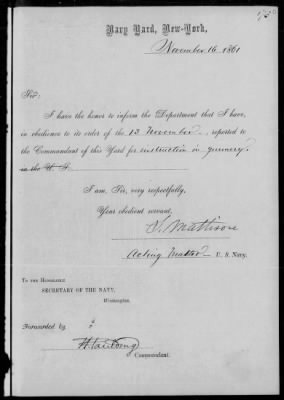 Navy Yard, New-York,
November 16, 1861
Sir:
I have the honor to inform the Department that I have,
in obedience to its order of the 13 November, reported
to the Commandant of this Yard for instruction in gunnery.
in the
I am, Sir, very respectfully,
Your obedient servant,
S. Mathison
Acting Master U. S. Navy.
To the Honorable
SECRETARY OF THE NAVY,
Washington.
Forwarded by
Commandant.